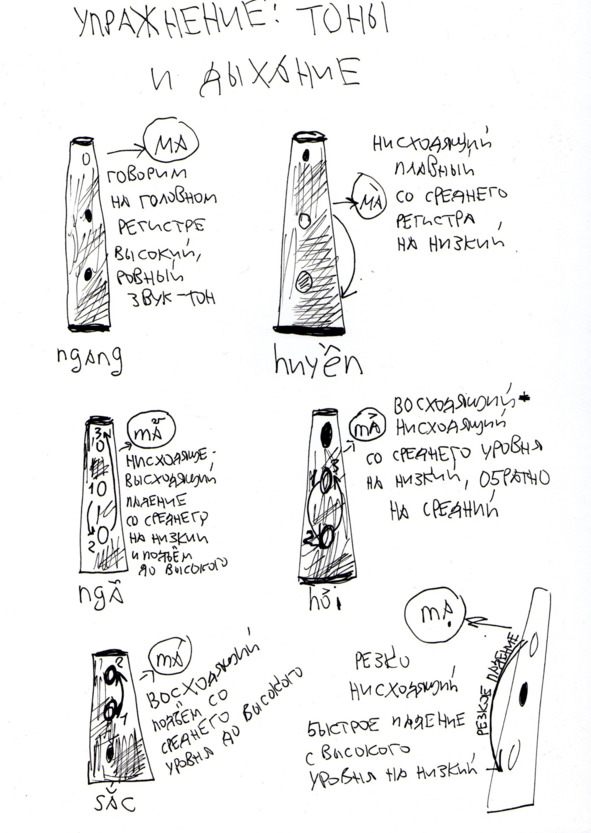 УПРАЖНЕНИЕ: ТОНЫ
И ДЫХАНИЕ
MA
ГОВОРИМ
НА ГОЛОВНОМ
РЕГИСТРЕ
ВЫСОКИЙ,
РОВНЫЙ
ЗВУК-ТОН
ngang
MÀ
НИСХОДЯЩИЙ
ПЛАВНЫЙ
СО СРЕДНЕГО
РЕГИСТРА
НА НИЗКИЙ
huyền
mã
3
1
2
НИСХОДЯЩЕ-
ВЫСХОДЯЩИЙ
ПАДЕНИЕ
СО СРЕДНЕГО
НА НИЗКИЙ
И ПОДЪЁМ
ДО ВЫСОКОГО
ngã
mả
1 3
2
ВОСХОДЯЩИЙ
НИСХОДЯЩИЙ
СО СРЕДНЕГО УРОВНЯ
НА НИЗКИЙ, ОБРАТНО
НА СРЕДНИЙ
hỏi
má
2
1
ВОСХОДЯЩИЙ
ПОДЪЁМ СО
СРЕДНЕГО
УРОВНЯ ДО ВЫСОКОГО
SẮC
mạ
РЕЗКО
НИСХОДЯЩИЙ
БЫСТРОЕ ПАДЕНИЕ
С ВЫСОКОГО
УРОВНЯ НА НИЗКИЙ
РЕЗКОЕ ПАДЕНИЕ